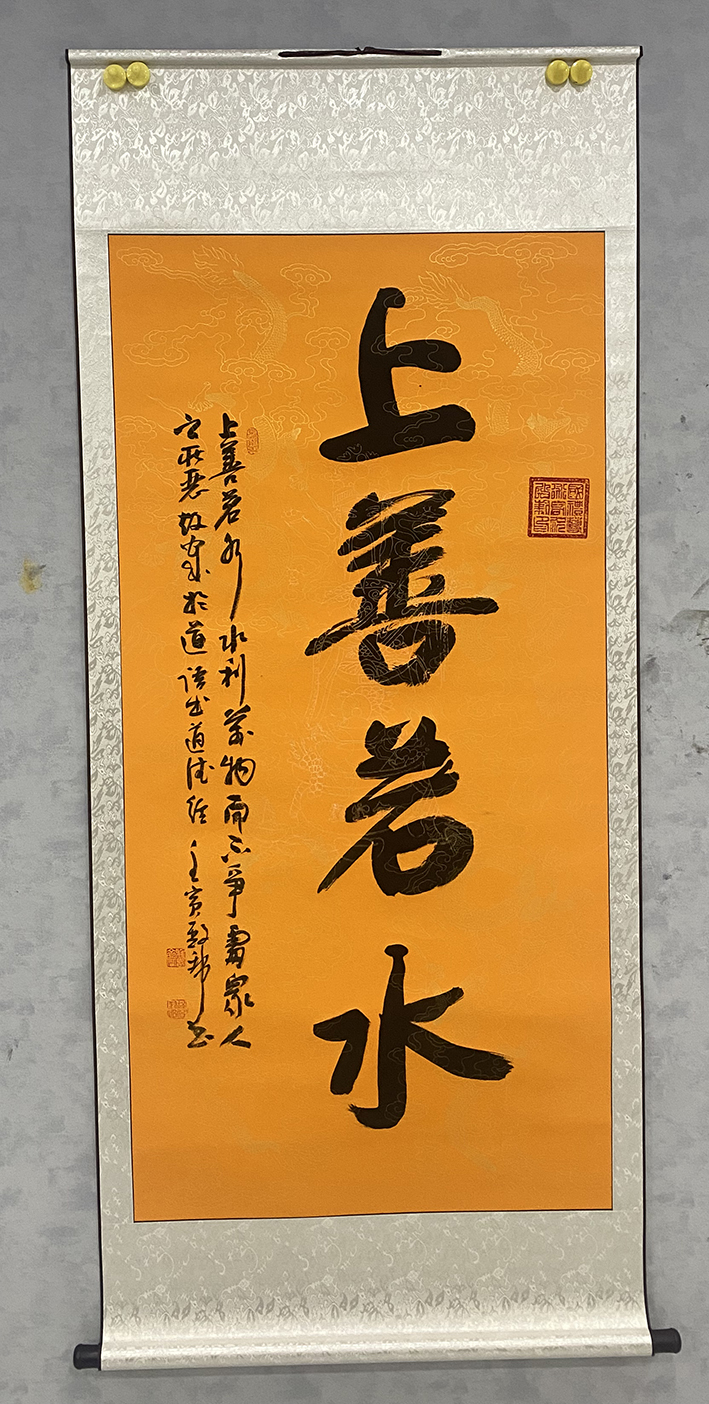 上善若水
上善若水水利萬物而不爭處衆人
之所惡故幾於道語出道德經壬寅書